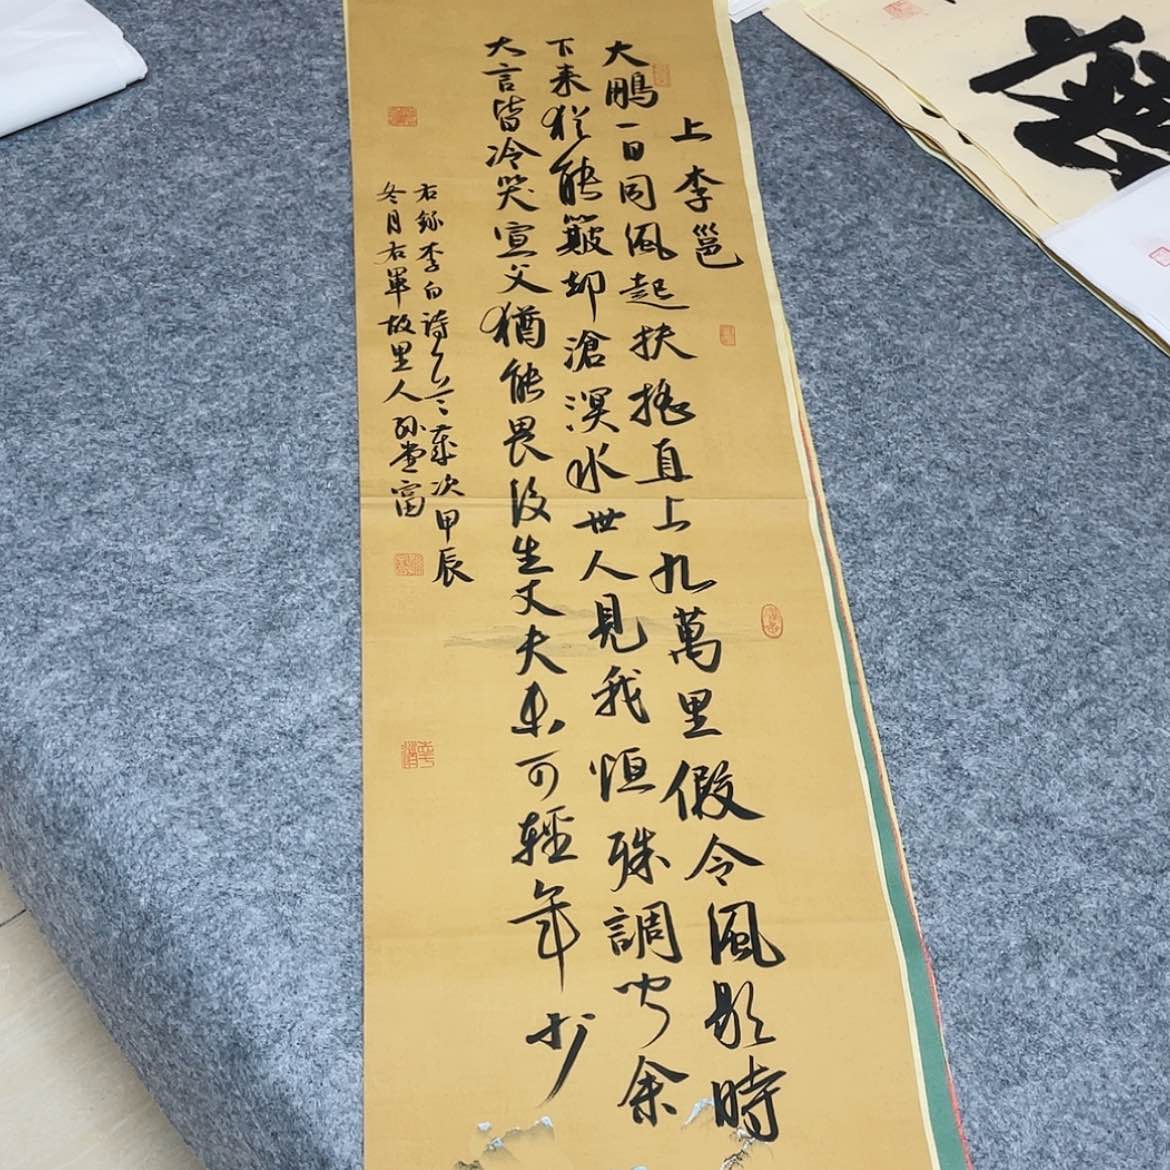 上李邕
大鵬一日同風起扶搖直上九萬里假令風歇時
下來猶能簸却滄溟水世人見我恒殊調聞余
大言皆冷笑宣父猶能畏後生丈夫未可輕年少
右錄李白詩一首歲次甲辰
冬月右軍故里人孫富